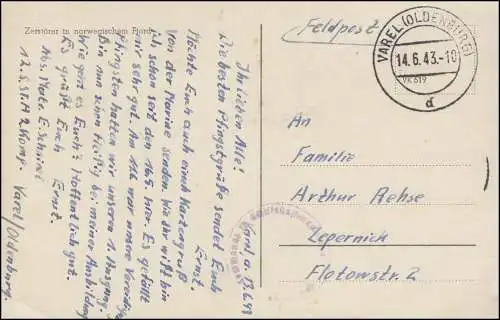 Zerstörer in norwegischem Fjord
Feldpost
VAREL (OLDENBURG)
14.6.43.-10
d
An
Familie
Arthur Rehse
Zepernick
Flotowstr. 2
Varel, d. 13.6.43
Ihr lieben Alle!
Die besten Pfingstgrüße sendet Euch
Ernst.
Möchte Euch auch einen Kartengruß
von der Marine senden. Wie Ihr wißt bin
ich schon seit dem 16.5. hier. Es gefällt
mir sehr gut. Am 11.6. war unsere Vereidigung
Pfingsten hatten wir unseren 1. Ausgang.
Bin nun schon fleißig bei meiner Ausbildung
Wie geht es Euch? Hoffentlich gut.
Es grüßt Euch Ernst.
Abs. Matr. E.
12. S.St.A. 2. Komp. Varel/Oldenburg.